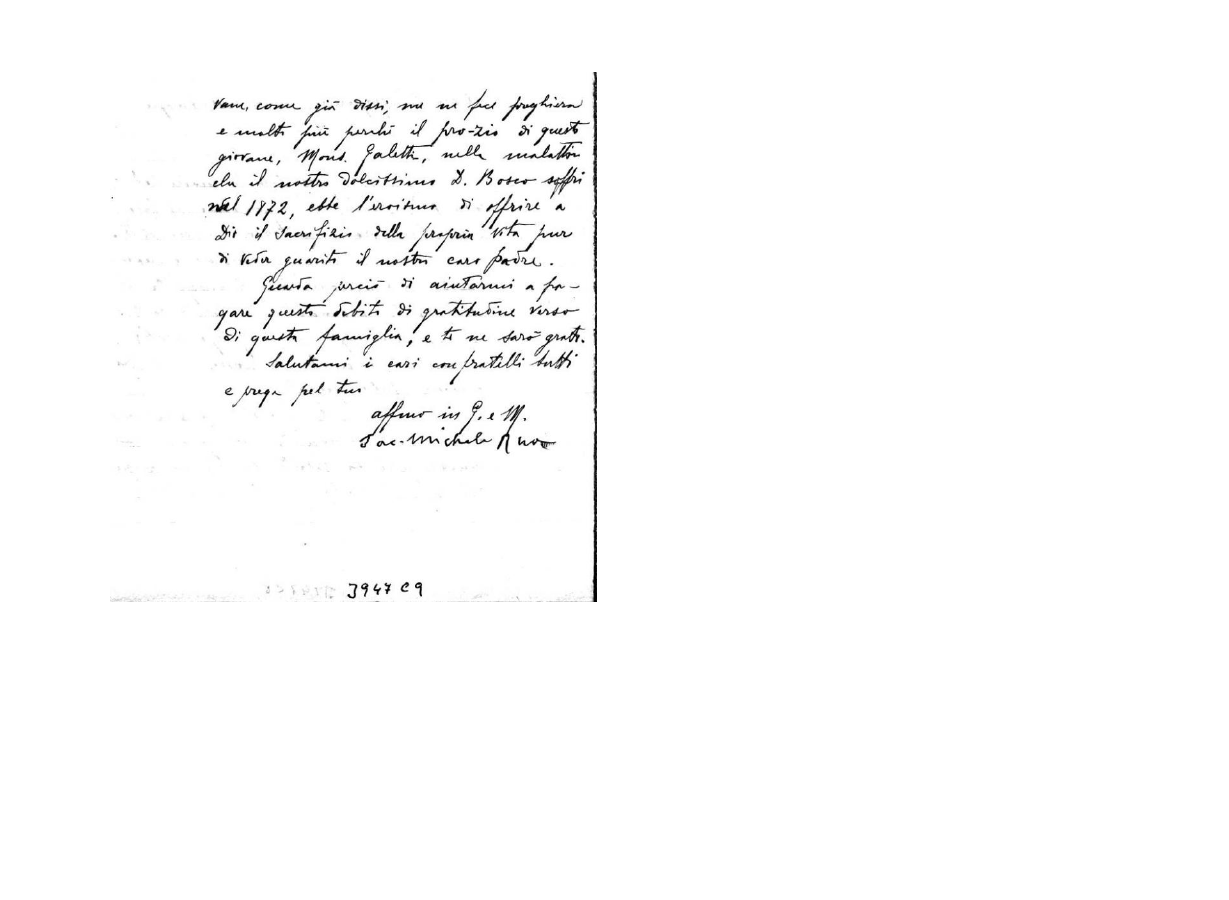 vane, come già dissi, me ne fece preghiera
e molto più perchè il pro-zio di questo
giovane, Mons. Galetti, nella malattia
che il nostro dolcissimo D. Bosco soffrì
nel 1872, ebbe l'eroismo di offrire a
Dio il sacrifizio della propria vita pur
di veder guarito il nostro caro padre.
Guarda perciò di aiutarmi a pa-
gare questo debito di gratitudine verso
di questa famiglia, e te ne sarò grato.
Salutami i cari confratelli tutti
e prega pel tuo
affmo in G. e M.
Sac. Michele Rua
3947 C9